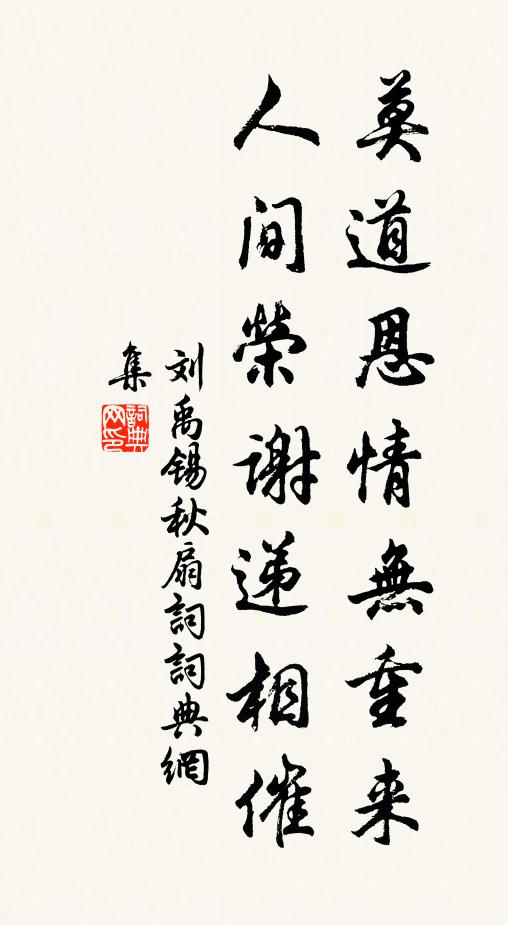 莫道恩情無重来
人间榮谢递相催
刘禹锡秋扇詞詞典網
集
詞典
网印